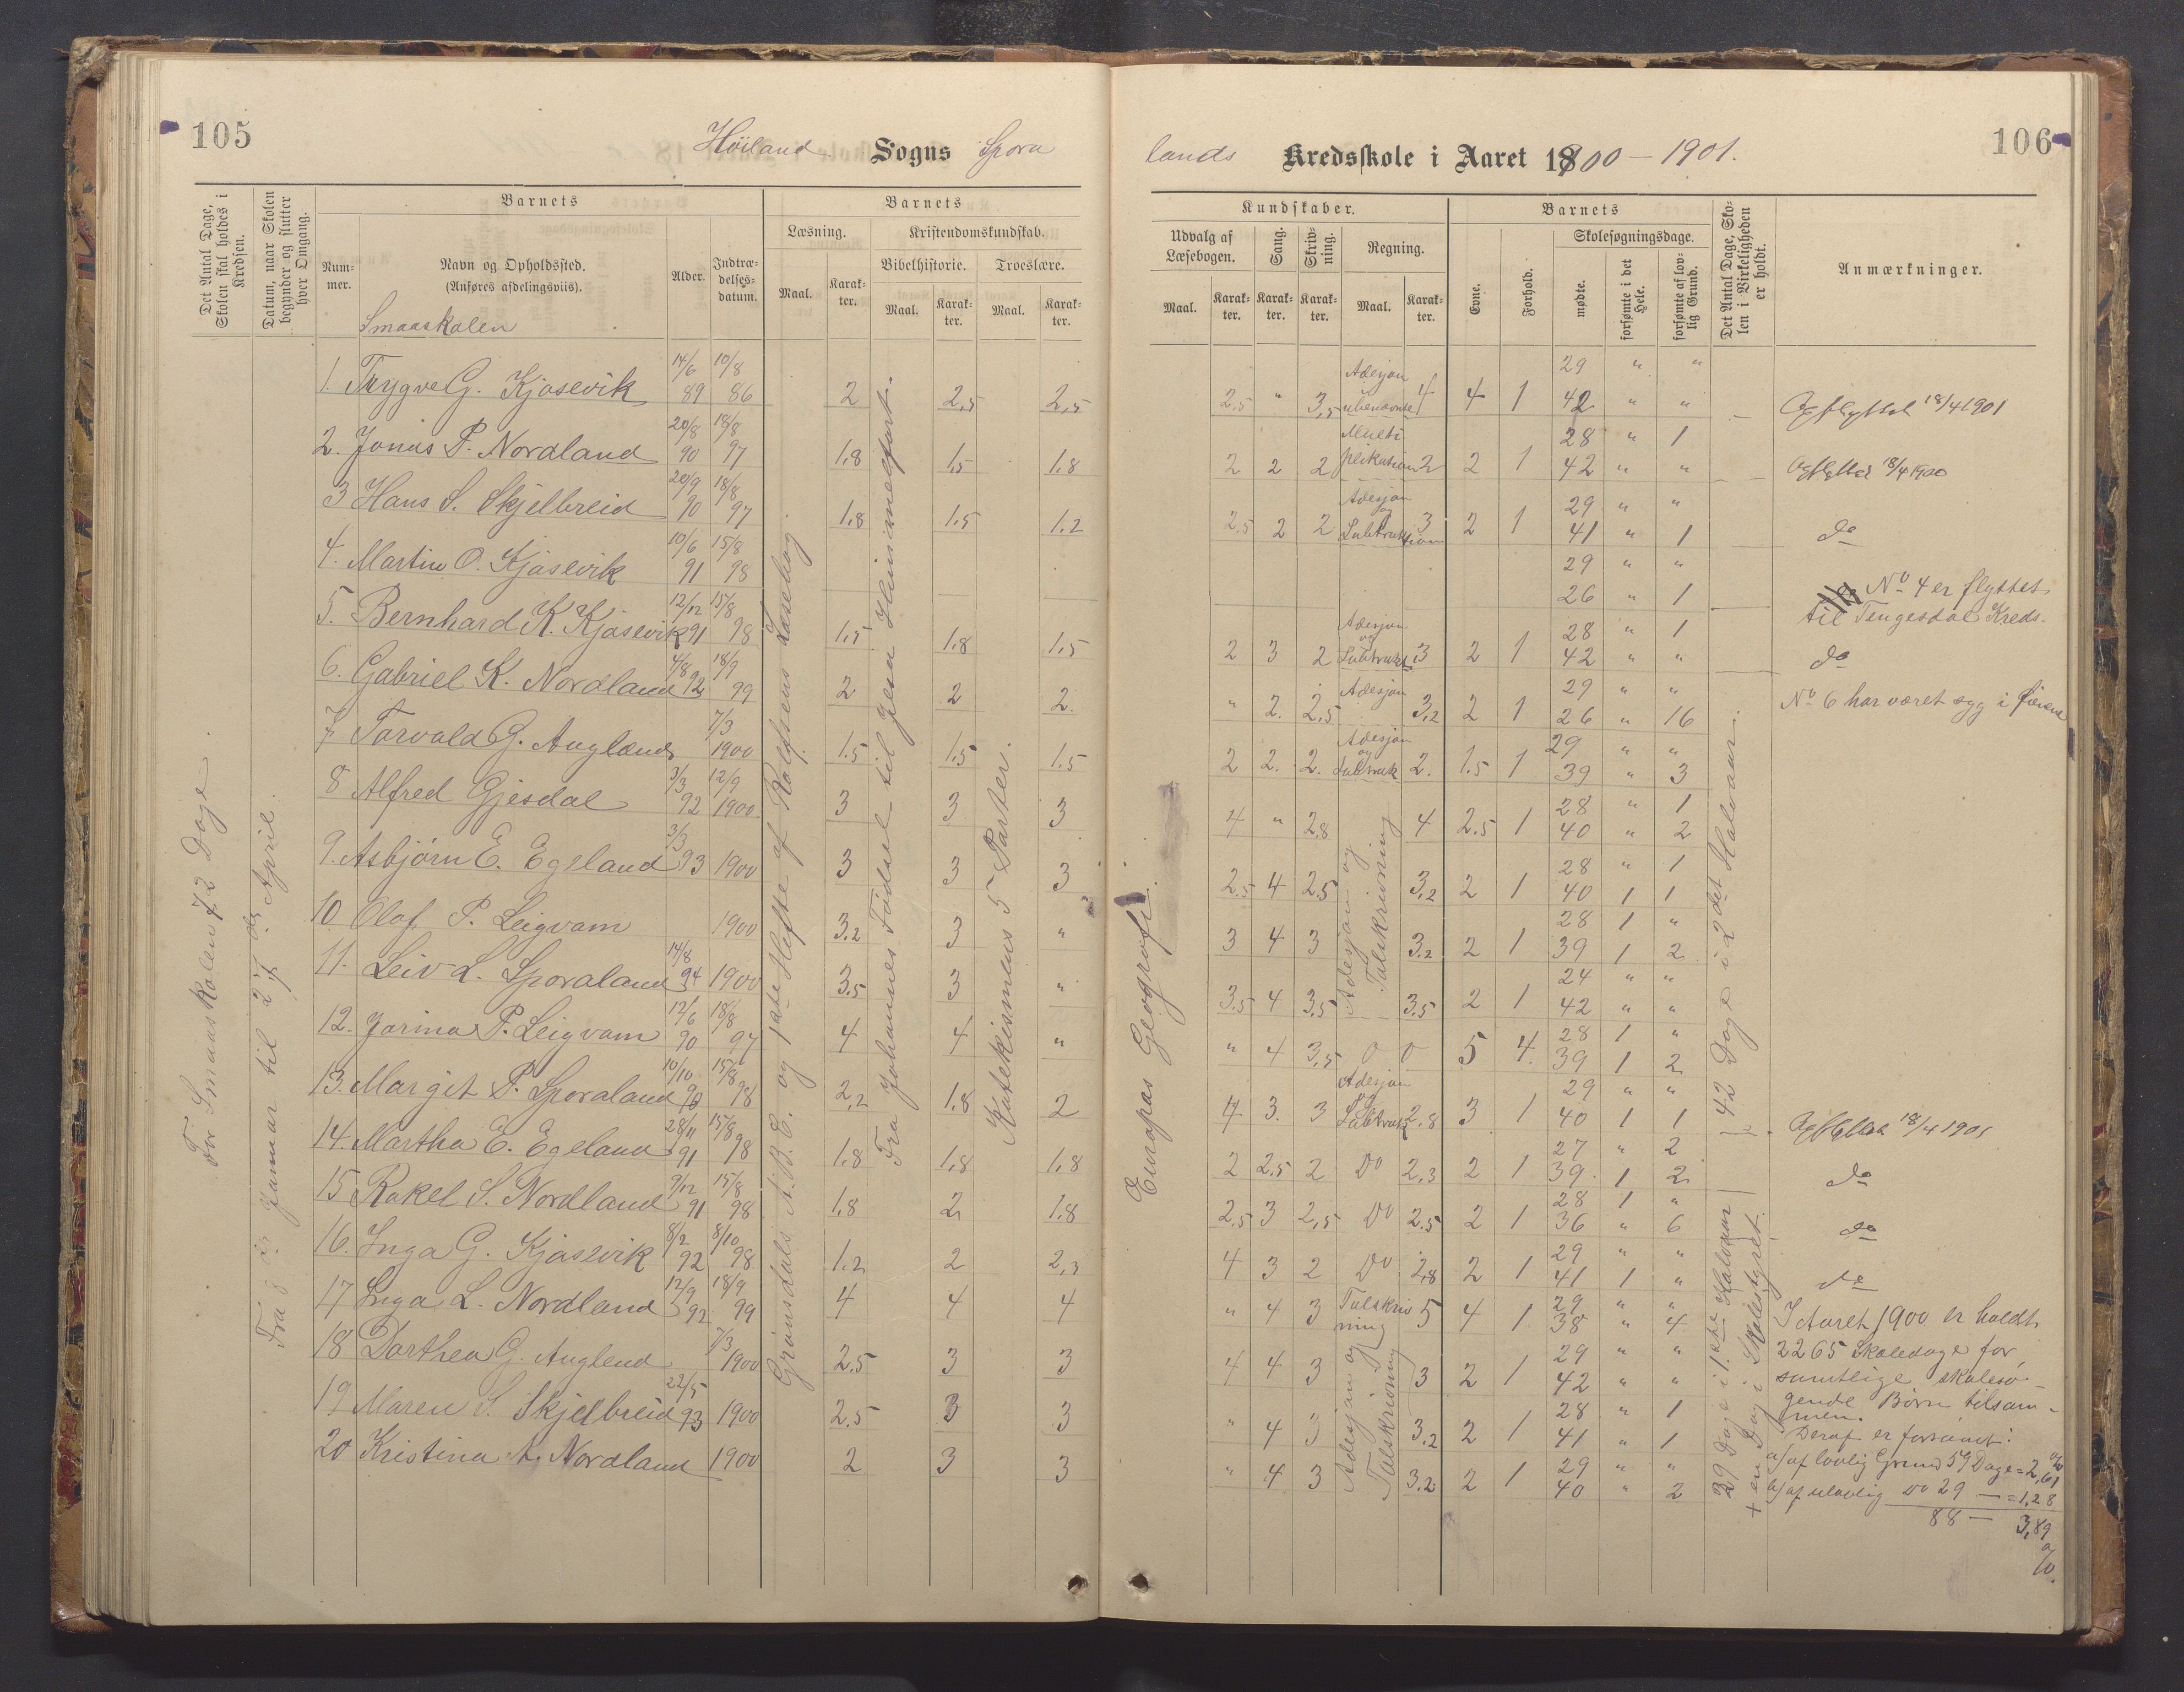 105
Höiland Sogns Spora
lands Kredsskole i Aaret 1900 - 1901.
106
Det Antal Dage, Skolen skal holdes i Kredsen.
Datum, naar Skolen begynder og slutter hver Omgang.
Barnets
Num-mer.
Navn og Opholdssted.
(Anføres afdelingsviis).
Smaaskolen
Alder.
Indtræ-delses-datum.
Barnets
Læsning.
Maal.
Karak-ter.
Kristendomskundskab.
Bibelhistorie.
Maal.
Karak-ter.
Troeslære.
Maal.
Karak-ter.
Kundskaber.
Udvalg af Læsebogen.
Maal.
Karak-ter.
Sang.
Karak-ter.
Skriv-ning.
Karak-ter.
Regning.
Maal.
Karak-ter.
Barnets
Evne.
Forhold.
Skolesøgningsdage.
mødte.
forsømte i det Hele.
forsømte af lov-lig Grund.
Det Antal Dage, Sko-len i Virkeligheden er holdt.
Anmærkninger.
For Smaaskolen 72 Dage.
Fra 8 de Januar til 27 de April.
Grønsdals A.B.C. og 1ste Hefte af Rolfsens Læsebog
Fra Johannes Fødsel til Jesu Himmelfart.
Katekismens 5 Parter.
Europas Geografi.
1. Trygve G. Kjosevik 14/6 89 10/8 86 2 2,5 2,5 2.5 " 3,5 Adesjon ubenævnte 4 4 1 29 " " 42 " " Afflyttet 18/4 1901
2. Jonas P. Nordland 20/8 90 18/8 97 1.8 1.5 1.8 2 2 2 Multiplikation 2 2 1 28 " 1 42 " " Afflyttet 18/4 1900
3 Hans S. Skjelbreid 20/9 90 18/8 97 1.8 1.5 1.2 2.5 2 2 Adesjon og Subtraktion 3 2 1 29 " " 41 " 1 do
4. Martin O. Kjosevik 10/6 91 15/8 98 29 " " 26 " 1 No 4 er flyttet
til Tengesdal Kreds.
5. Bernhard K. Kjosevik 12/12 91 15/8 98 1.5 1.8 1.5 2 3 2 Adesjon og Subtrakt 3 2 1 28 " 1 42 " " do
6. Gabriel K. Nordland 4/8 92 18/9 99 2 2 2. " 2. 2,5 Adesjon 3,2 2 1 29 " " 26 " 16 No 6 har været syg i
7 Torvald G. Augland 7/3 1900 1.5 1.5 1.5 2 2. 2. Adesjon og Subtrak 2. 1.5 1 29 " " 39 " 3
8 Alfred Gjesdal 3/3 92 12/9 1900 3 3 3 4 " 2.8 4 2.5 1 28 " 1 40 " 2
9. Asbjørn E. Egeland 3/3 93 1900 3 3 3 2.5 4 2.5 3.2 2 1 28 " 1 40 1 1
10 Olof P. Leigvam 1900 3.2 3 " 3 4 3 3.2 2 1 28 1 " 39 1 2
11. Leiv L. Sporaland 14/8 94 1900 3.5 3 " 3.5 4 3.5 3.5 2 1 24 " " 42 " "
Adesjon og Talskrivning
12. Jorina P. Leigvam 12/6 90 18/8 97 4 4 " " 4 3,5 0 0 5 4. 28 1 " 39 1 2
13. Margit P. Sporaland 10/10 90 15/8 98 2,2 1.8 2 4 3. 3 Adesjon og Subtrakt 2.8 3 1 29 " " 40 1 1 Afflyttet 18/4 1901
14. Martha E. Egeland 28/11 91 15/8 98 1.8 1.8 1.8 2 2.5 2 Do 2,3 2 1 27 " 2 39 1 2 do
15 Rakel S. Nordland 9/12 91 15/8 98 1.8 2 1.8 2.5 3 2,5 Do 2.5 2 1 28 1 " 36 " 6 do
16. Inga G. Kjosevik 8/2 92 8/10 98 1.2 2 2,3 4 3 2 Do 2,8 2 1 29 " " 41 1 " do
17 Inga L. Nordland 12/9 92 18/9 99 4 4 4 " 4 3 Talskrivning 5 4 1 29 " " 38 " 4
18 Dorthea G. Auglend 7/3 1900 2.5 3 3 4 4 3 3 2 1 29 " " 42 " "
19 Maren S. Skjelbreid 22/5 93 1900 2.5 3 3 " 4 3 3.2 2 1 28 " 1 41 " 1
20 Kristina A. Nordland 1900 2 3 3 " 4 3 3.2 2 1 29 " " 40 " 2
Adesjon og Talskrivning
29 Dage i 1ste Halvaar 42 Dage i 2det Halvaar.
+ en Dag i Skolestyret.
I Aaret 1900 er holdt
2265 Skoledage for
samtlige skolesø-
gende Børn tilsam-
men.
Deraf er forsømt:
a/ af lovlig Grund 59 Dage = 2,61 %
b/ af ulovlig Do 29 — = 1,28
88 — 3,89
%.